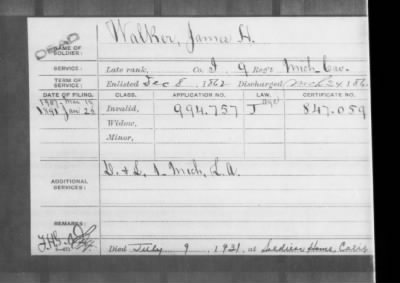 DEAD
Walker, James H.
NAME OF SOLDIER:
SERVICE: Late rank, Co. I, 9 Reg't Mich. Cav.
TERM OF SERVICE: Enlisted Dec 8, 1862 Discharged 186
DATE OF FILING. CLASS. APPLICATION NO. LAW. CERTIFICATE NO.
1907
1891 Jan 26 Invalid, 994.757 J 847.059
Widow,
Minor,
ADDITIONAL SERVICES: D. & L. 1. Mich. L.A.
REMARKS:
Died July 9, 1921, at Soldiers Home, Calif